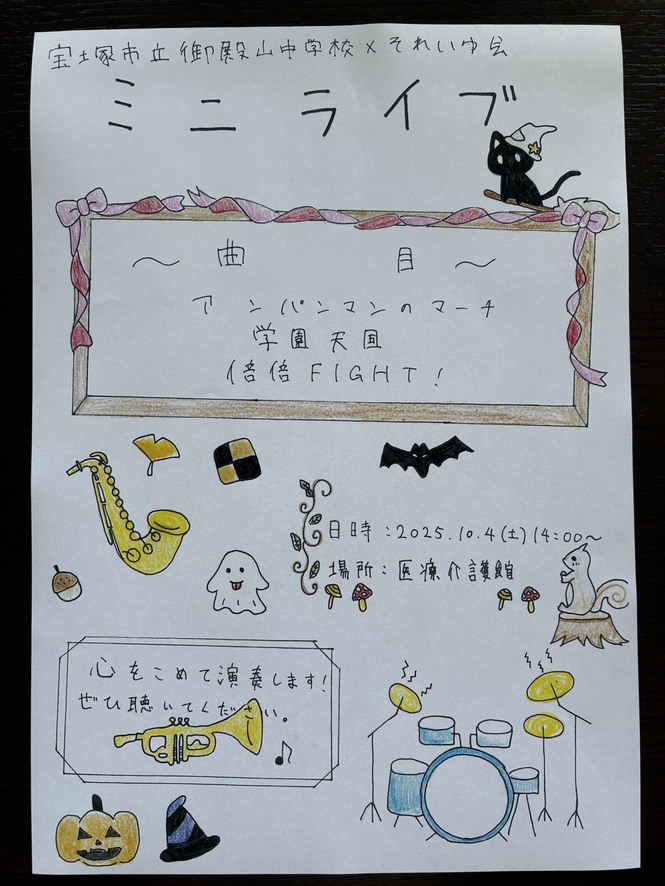 宝塚市立御殿山中学校×それいゆ会
ミニライブ
～曲目～
アンパンマンのマーチ
学園天国
倍倍FIGHT!
日時:2025.10.4(土)14:00～
場所:医療介護館
心をこめて演奏します!
ぜひ聴いてください。